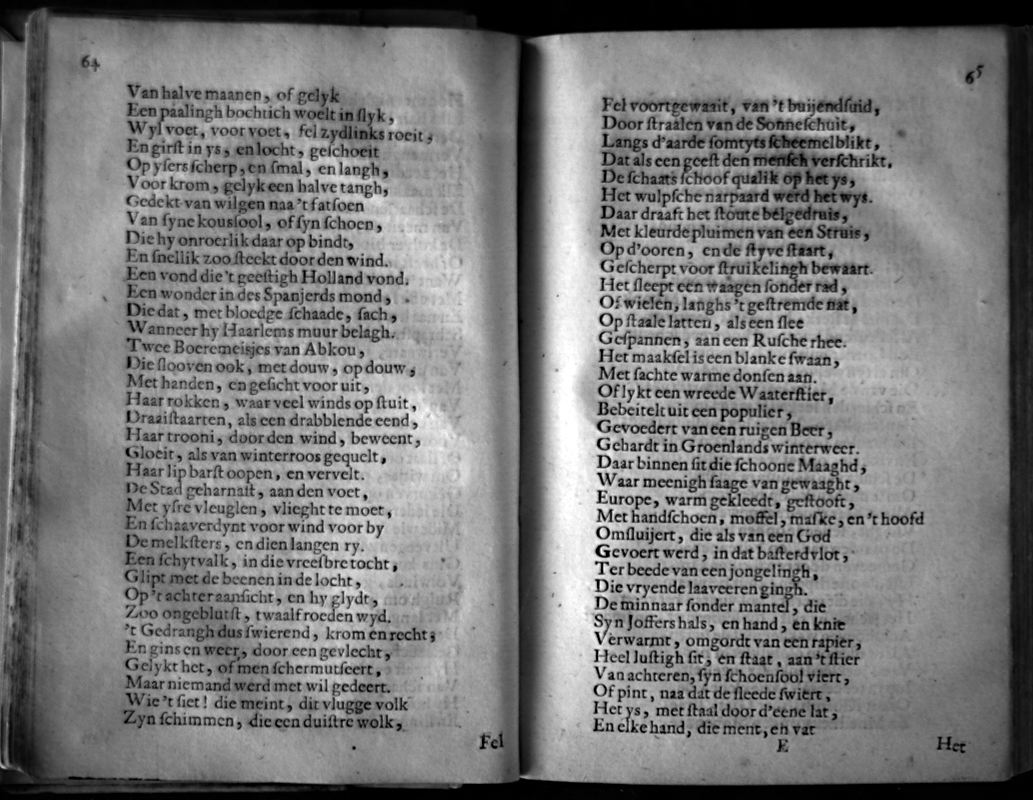 64
Van halve maanen, of gelyk
Een paalingh bochtich woelt in ſlyk,
Wyl voet, voor voet, fel zydlinks roeit,
En girſt in ys, en locht, geſchoeit
Op yſers ſcherp, en ſmal, en langh,
Voor krom, gelyk een halve tangh,
Gedekt van wilgen naa 't fatſoen
Van ſyne kousſool, of ſyn ſchoen,
Die hy onroerlik daar op bindt,
En ſnellik zoo ſteekt door den wind.
Een vond die 't geeſtigh Holland vond.
Een wonder in des Spanjerds mond,
Die dat, met bloedge ſchaade, ſach,
Wanneer hy Haarlems muur belagh.
Twee Boeremeisjes van Abkou,
Die ſlooven ook, met douw, op douw,
Met handen, en geſicht voor uit,
Haar rokken, waar veel winds op ſtuit,
Draaiſtaarten, als een drabblende eend,
Haar trooni, door den wind, beweent,
Gloeit, als van winterroos gequelt,
Haar lip barſt oopen, en vervelt.
De Stad geharnaſt, aan den voet,
Met yſre vleuglen, vlieght te moet,
En ſchaaverdynt voor wind voor by
De melkſters, en dien langen ry.
Een ſchytvalk, in die vreeſbre tocht,
Glipt met de beenen in de locht,
Op 't achteraanſicht, en hy glydt,
Zoo ongeblutſt, twaalf roeden wyd.
't Gedrangh dus ſwierend, krom en recht,
En gins en weer, door een gevlecht,
Gelykt het, of men ſchermutſeert,
Maar niemand werd met wil gedeert.
Wie 't ſiet! die meint, dit vlugge volk
Zyn ſchimmen, die een duiſtre wolk,
Fel
65
Fel voortgewaait, van 't buijendſuid,
Door ſtraalen van de Sonneſchuit,
Langs d'aarde ſomtyts ſcheemelblikt,
Dat als een geeſt den menſch verſchrikt.
De ſchaats ſchoof qualik op het ys,
Het wulpſche narpaard werd het wys.
Daar draaft het ſtoute belgedruis,
Met kleurde pluimen van een Struis,
Op d'ooren, en de ſtyve ſtaart,
Geſcherpt voor ſtruikelingh bewaart.
Het ſleept een waagen ſonder rad,
Of wielen, langhs 't geſtremde nat,
Op ſtaale latten, als een ſlee
Geſpannen, aan een Ruſche rhee.
Het maakſel is een blanke ſwaan,
Met ſachte warme donſen aan.
Of lykt een wreede Waaterſtier,
Bebeitelt uit een populier,
Gevoedert van een ruigen Beer,
Gehardt in Groenlands winterweer.
Daar binnen ſit die ſchoone Maaghd,
Waar meenigh ſaage van gewaaght,
Europe, warm gekleedt, geſtooft,
Met handſchoen, moffel, maſke, en 't hoofd
Omſluijert, die als van een God
Gevoert werd, in dat baſterd vlot,
Ter beede van een jongelingh,
Die vryende laaveeren gingh.
De minnaar ſonder mantel, die
Syn Joffers hals, en hand, en knie
Verwarmt, omgordt van een rapier,
Heel luſtigh ſit, en ſtaat, aan 't ſtier
Van achteren, ſyn ſchoenſool viert,
Of pint, naa dat de ſleede ſwiert,
Het ys, met ſtaal door d'eene lat,
En elke hand, die ment, en vat
E
Het